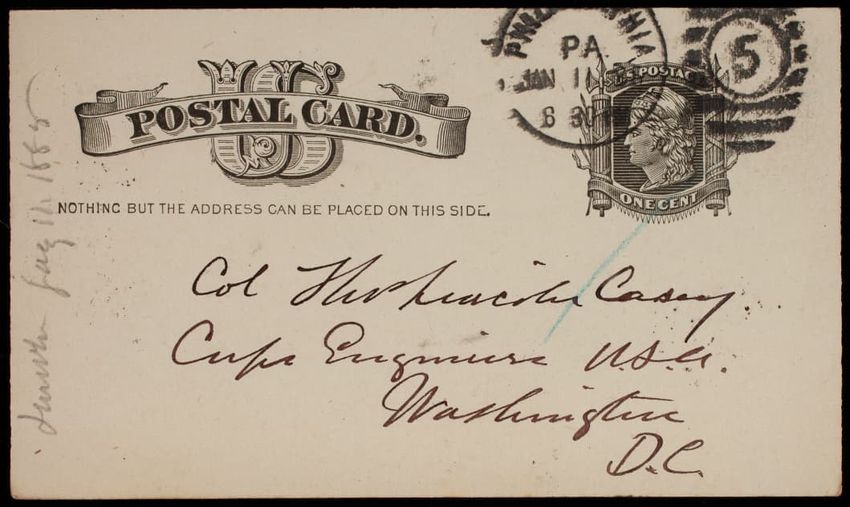 US
POSTAL CARD.
NOTHING BUT THE ADDRESS CAN BE PLACED ON THIS SIDE.
PHILADELPHIA
PA
JAN 11
6 30
5
U.S. POSTAGE
ONE CENT
Col Thos Lincoln Casey.
Corps Engineers U.S.A.
Washington
D.C.
Jany 11. 1885